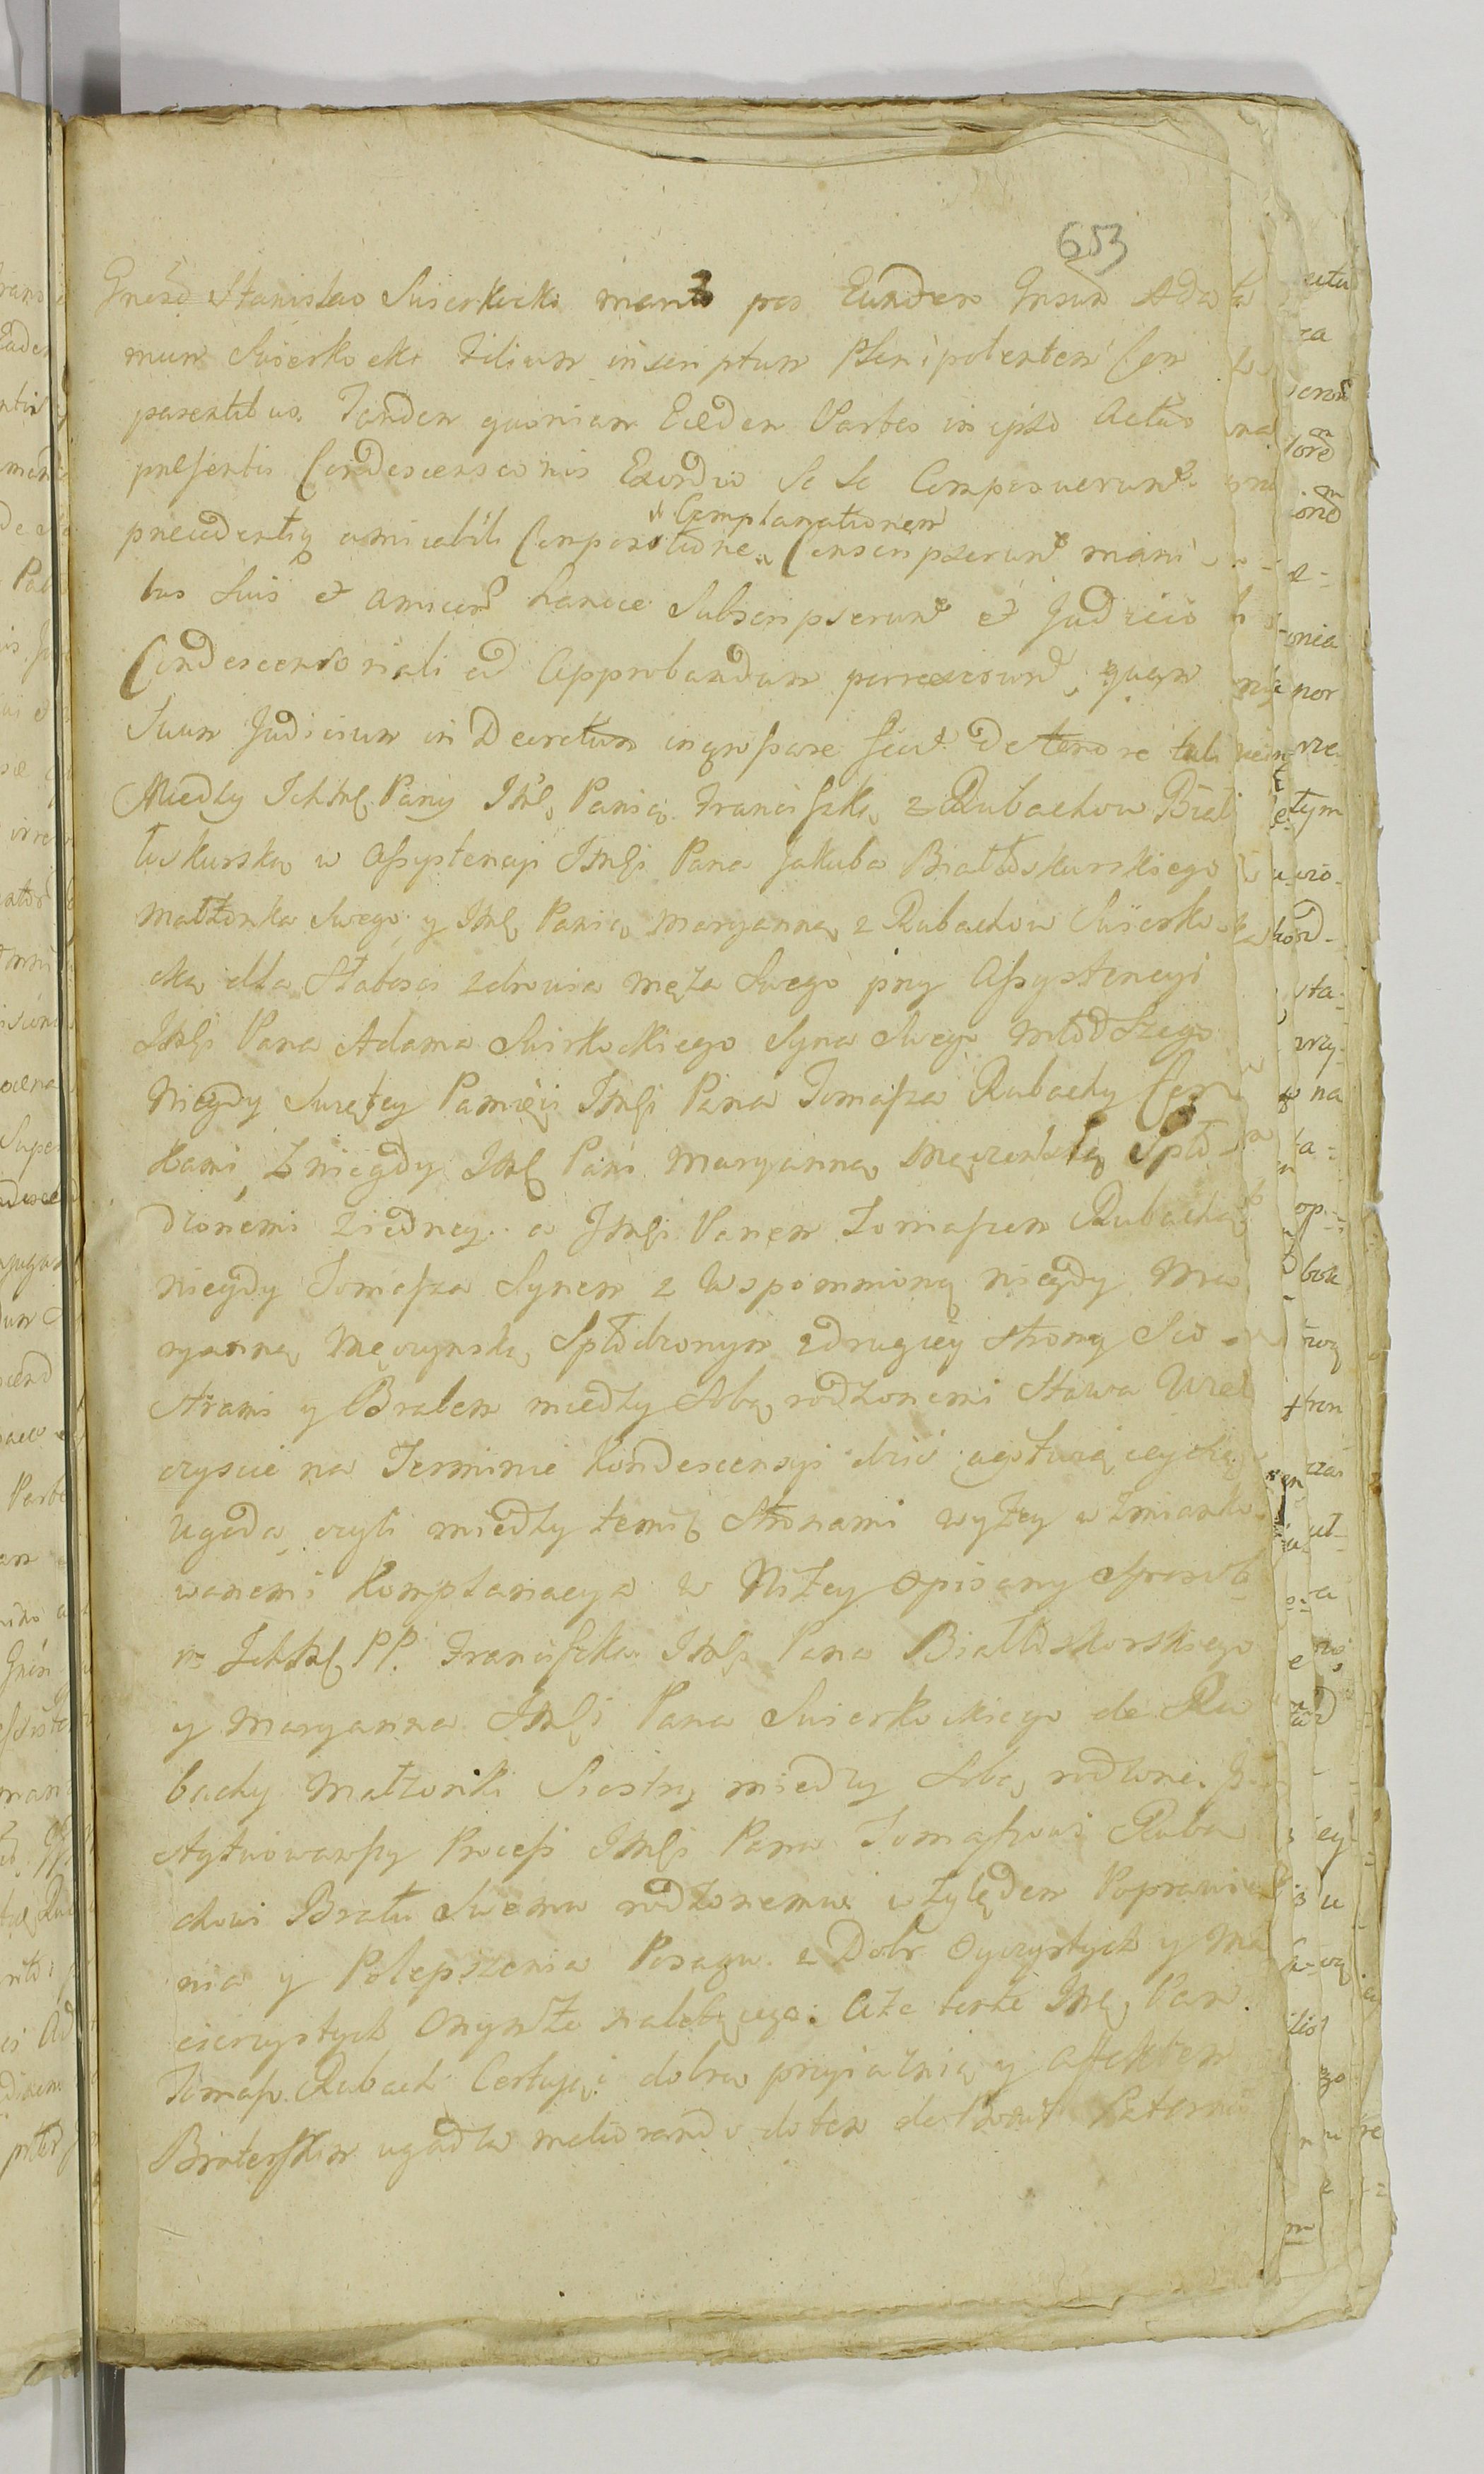 653
Gnoso Stanislao Swierkocki marito per Eundem Gnsum Ada
mum Swierkocki Filium inscriptum Plenipotentem Com
parentibus. Tandem quoniam Eædem Partes in ipso Actus
præsentis Condescensionis Exordio Se Se Composuerunt
præcedentiq amicabili Compositione Complanationem Conscripserunt mani
bus Suis et amicorum hancce Subscripserunt et Judicio
Condescensoriali ad Approbandum porrexerunt, quam
Suum Judicium in Decretum ingrossare fecit de tenore tali
Miedzy Ichmę Pany Imę Panią Franciszką z Rubachow Biał
łoskurską w Assystencyi Imści Pana Jakuba Białłoskurskiego
Małżonka Swego y Imę Panią Maryanną z Rubachow Swierko
cką dla Słabosci zdrowia męża Swego przy Assystencyi
Imści Pana Adama Swirkockiego Syna Swego młodszego
Niegdy Swiętey Pamięci Imści Pana Tomasza Rubachy Cor
kami z niegdy Imę Pani Maryanną Męczenską Spło
dzonemi z iedney a Imści Panem Tomaszem Rubachą
niegdy Tomasza Synem z Wspomnioną niegdy Ma
ryanną Męczynską Spłodzonym z drugiey strony Sio
strami y Bratem miedzy Sobą rodzonemi Stawa Wie
czyscie na Terminie Kondescensyi dzis
Ugoda czyli miedzy temiż Stronami wyżey wzmianko
wanemi Komplanacya w Niżey opisany sposob
Ichmę PP. Franciszka Imści Pana Białłoskorskiego
y Maryanna Imści Pana Swierkockiego de Ru
bachy Małżonki Siostry miedzy Sobą rodzone
stytuowawszy Process Imści Panu Tomaszowi Ruba
chowi Bratu Swemu rodzonemu względem Poprawie
nia y Polepszenia Posagu z Dobr Oyczystych y Ma
cierzystych Onymże należącego: A że tenże Imę Pan
Tomasz Rubach Certując dobrą przyiaźnią y affektem
Braterskim ugadza meliorando dotem de Bonis Paternis